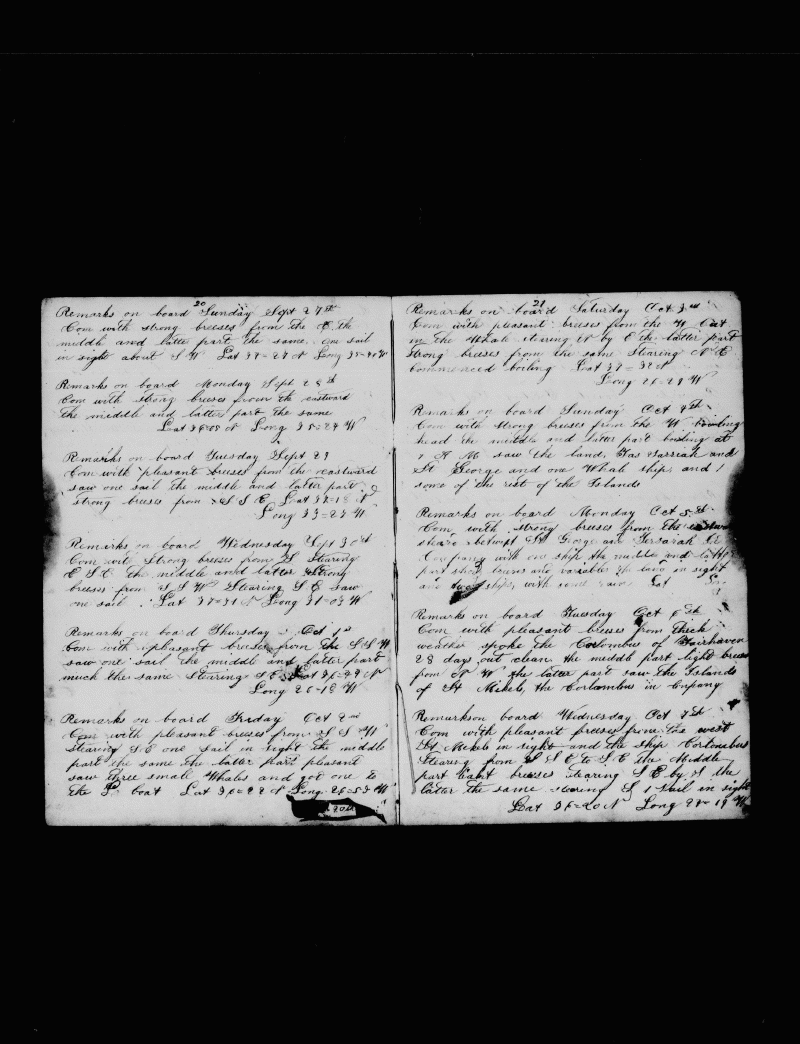 20
Remarks on board Sunday Sept 27th
Com with strong breeses from the E the
middle and latter part the same. one sail
in sight about S W Lat 37=27 N Long 35=40 W
Remarks on board Monday Sept 28th
Com with strong breeses from the eastward
the middle and latter part the same
Lat 36=08 N Long 35=29 W
Remarks on board Tuesday Sept 29
Com with pleasant breeses from the eastward
saw one sail the middle and latter part
strong breeses from S S E Lat 37=18 N
Long 33=27 W
Remarks on board Wednesday Sept 30th
Com with Strong breeses from S Stearing
E S E the middle and latter Strong
breeses from S S W Stearing S E saw
one sail Lat 37=31 N Long 31=03 W
Remarks on board Thursday Oct 1st
Com with pleasant breeses from the S S W
saw one sail the middle and latter part
much the same Stearing S E Lat 36=29 N
Long 28=18 W
Remarks on board Friday Oct 2nd
Com with pleasant breeses from S S W
Stearing S E one sail in sight the middle
part the same the latter part pleasant
saw three small Whales and got one to
the L boat Lat 36=22 N Long 26=53 W
21
Remarks on board Saturday Oct 3rd
Com with pleasant breeses from the W Cut
in the Whale stearing N by E the latter part
Strong breeses from the same Stearing N E
commenced boiling Lat 37=32 N
Long 28=29 W
Remarks on board Sunday Oct 4th
Com with strong breeses from the W
head the middle and latter part boiling at
A M saw the land, and
St George and one Whale ship, and
some of the rest of the Islands
Remarks on board Monday Oct 5th
Com with strong breeses from the
betwixt St George
Company with one ship the middle and latter
part the land in sight
and ships with Lat
Remarks on board Tuesday Oct 6th
Com with pleasant breeses from thick
weather spoke the Corlombus of Fairhaven
28 days out clean the middle part light breeses
from N W the latter part saw the Islands
of St Mikels, the Corlambus in Cnpany
Remarks on board Wednesday Oct 7th
Com with pleasant breeses from the west
St Mikels in sight and the ship
Stearing from S S E to S E the Middle
part breeses stearing S E by S the
latter the same stearing S 1 Sail in sight
Lat 36=20 N Long 24=19 W